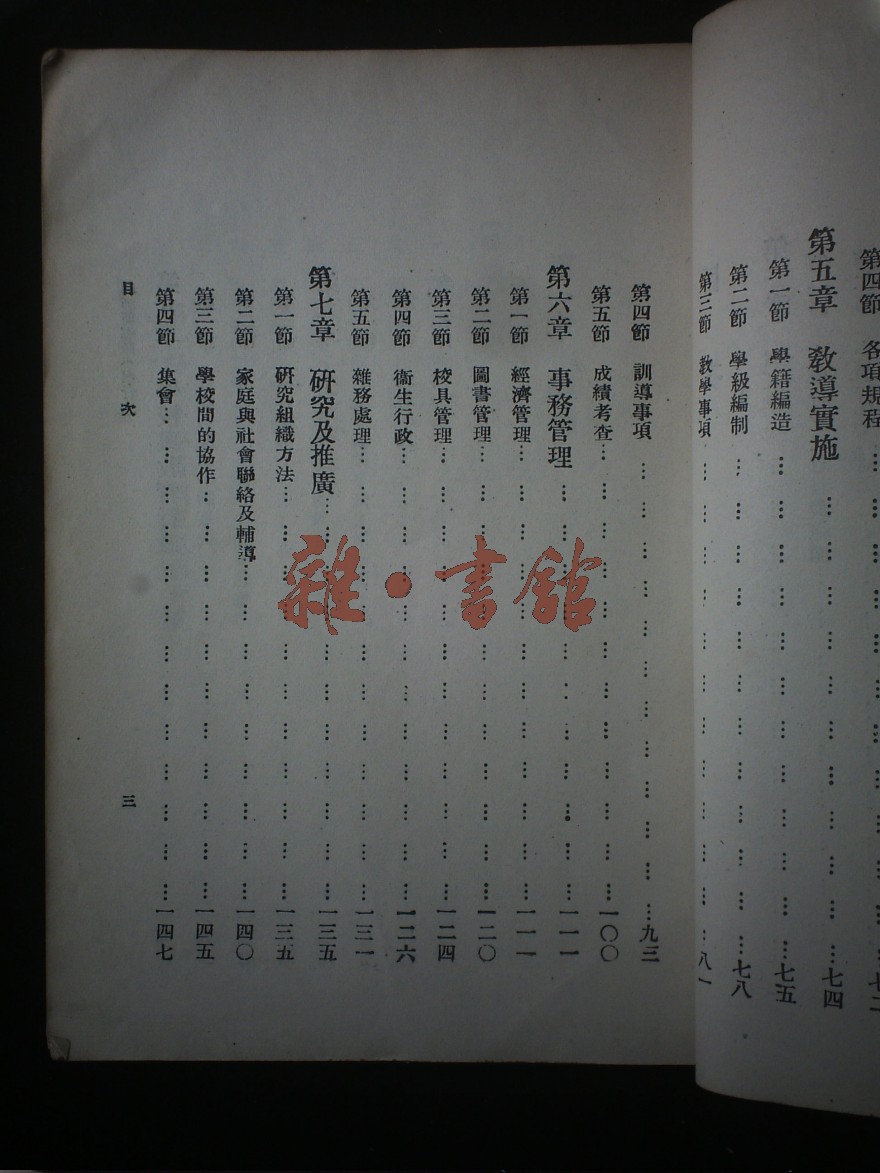 第四節 各項規程……七二
第五章 敎導實施……七四
第一節 學籍編造……七五
第二節 學級編制……七八
第三節 敎學事項……八一
第四節 訓導事項……九三
第五節 成績考查……一〇〇
第六章 事務管理……一一一
第一節 經濟管理……一一一
第二節 圖書管理……一二〇
第三節 校具管理……一二四
第四節 衞生行政……一二六
第五節 雜務處理……一三一
第七章 研究及推廣……一三五
第一節 研究組織方法……一三五
第二節 家庭與社會聯絡及輔導……一四〇
第三節 學校間的協作……一四五
第四節 集會……一四七
目次 三
雜·書館